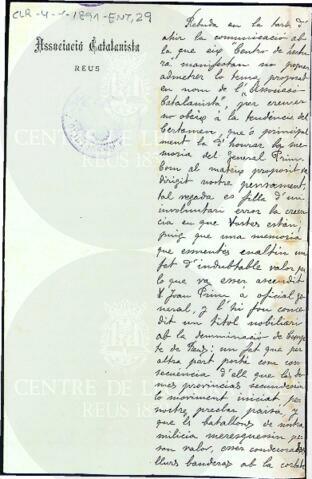 CLR-4-1-1891-ENT,29
Associació Catalanista
REUS
Rebuda en la tarde d'
ahir la comunicació ab
la que eix "Centro de Lectu
ra" manifestan no poguer
admetrer lo tema proposat
en nom de l'"Associació
Catalanista", per creurer
no obeix á la tendencia del
Certamen, que ó principal
ment la d'honrar la me
moria del General Prim.
Com al mateix proposit se
dirigit nostre pensament,
tal vegada es filla d'un
involuntari error la creen
cia en que Vostes están,
puig que una memoria
que enmentés enaltir un
fet d'indubtable valor per
lo que va esser ascendit
D. Joan Prim a oficial ge
neral, y l'hi fou conce
dit un titol nobiliari
ab la denominació de Comp
te de Reus; un fet que per
altra part portá com con
secuencia d'ell que las de
mes provincias secundessin
lo moviment iniciat per
nostre preclar paisá, y
que els batallons de nostra
milicia meresquessin per
son valor, esser condecoradas
llurs banderas ab la corbata
CENTRE DE LECTURA
REUS 1859